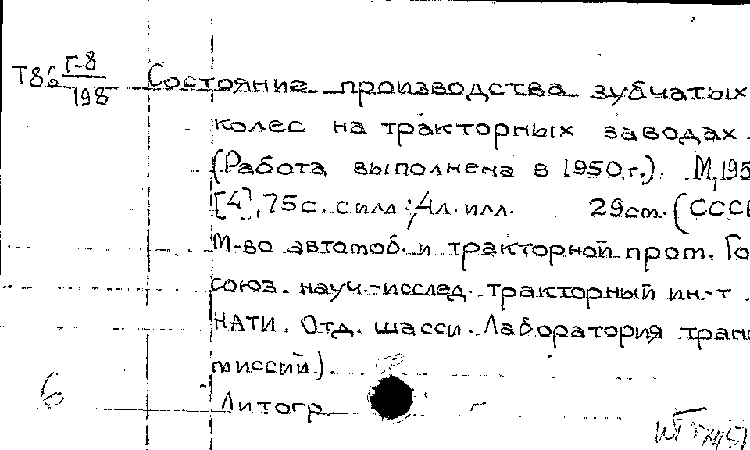 Т86 Г-8/198 Состояние производства зубчатых
колес на тракторных заводах.
(Работа выполнена в 1950 г.). М, 195
[4], 75 с. с илл; 4 л. илл. 29 cm. (СССР
М-во автомоб. и тракторной пром. Го
союз. науч.-исслед. тракторный ин-т
НАТИ. Отд. шасси. Лаборатория транс
миссий).
6 Литогр.